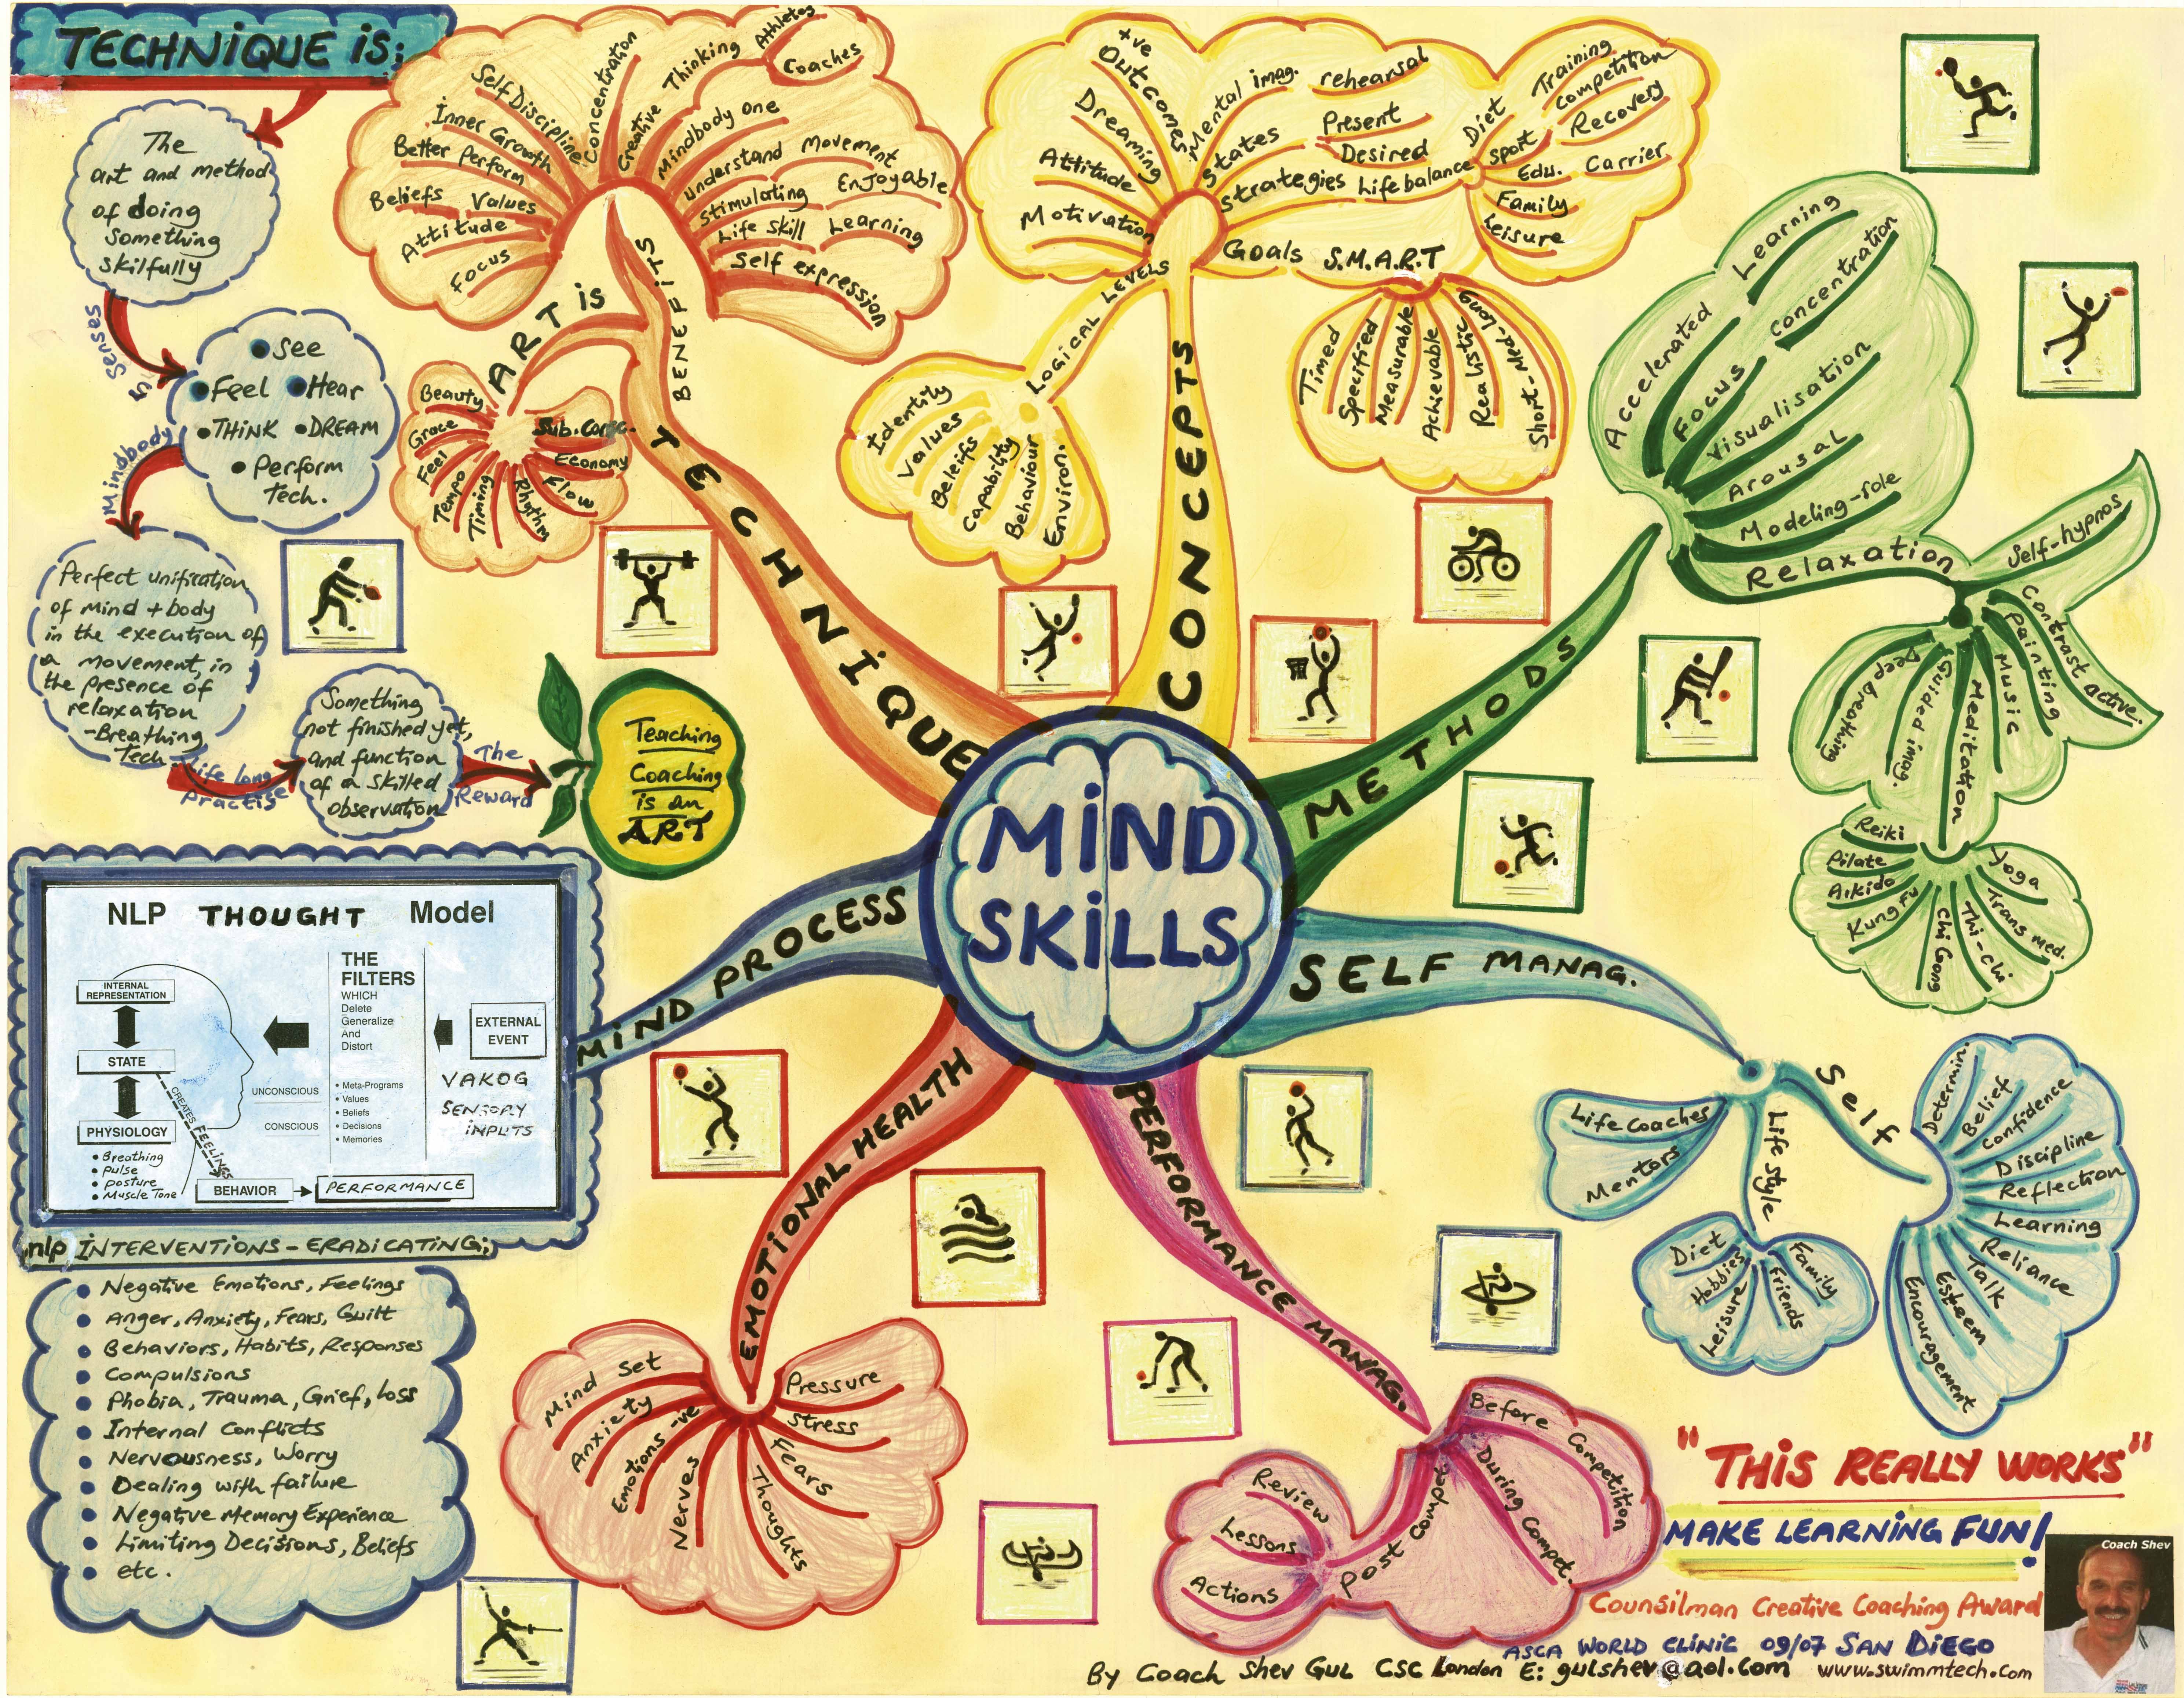 TECHNIQUE is:
The
art and method
of doing
something
skilfully
Senses
is
See
Feel Hear
THINK DREAM
Perform
Tech.
Mindbody
Perfect unification
of mind + body
in the execution of
a movement, in
the presence of
relaxation
-Breathing
Tech.
Life long
practise
Something
not finished yet,
and function
of a skilled
observation
The
Reward
Teaching
Coaching
is an
ART
MIND
SKILLS
TECHNIQUE
BENEFITS
Focus
Attitude
Beliefs Values
Better Perform
Inner Growth
Self Discipline
Concentration
Creative Thinking
Athletes
Coaches
Mindbody one
Understand Movement
Stimulating Enjoyable
Life Skill Learning
Self expression
ART is
Beauty
Grace
Feel
Tempo
Timing
Rhythm
Flow
Economy
Sub.Consc.
CONCEPTS
LOGICAL LEVELS
Identity
Values
Beleifs
Capability
Behaviour
Environ.
Motivation
Attitude
Dreaming
+ve Outcomes
Mental imag. rehearsal
States
Present
Desired
Strategies Life balance
Diet
Sport
Training
Competition
Recovery
Edu. Carrier
Family
Leisure
Goals S.M.A.R.T
Timed
Specified
Measurable
Achievable
Realistic
Short-Med-Long
METHODS
Accelerated Learning
Focus Concentration
Visualisation
Arousal
Modeling-role
Relaxation
Self-hypnos
Contrast active.
Painting
Music
Meditation
Guided imag.
Deep breathing
Reiki
Pilate
Aikido
Kung fu
Chi Gong
Thi-chi
Trans med.
Yoga
SELF MANAG.
Self
Determin.
Belief
Confidence
Discipline
Reflection
Learning
Reliance
Talk
Esteem
Encouragement
Life Style
Diet
Hobbies
Leisure
Friends
Family
Life Coaches
Mentors
PERFORMANCE MANAG.
Before Competition
During Compet.
Post Compet
Review
Lessons
Actions
EMOTIONAL HEALTH
Mind Set
Anxiety
Emotions -ve
Nerves
Thoughts
Fears
Stress
Pressure
MIND PROCESS
NLP THOUGHT Model
INTERNAL
REPRESENTATION
STATE
PHYSIOLOGY
• Breathing
• pulse
• posture
• Muscle Tone
CREATES FEELINGS
BEHAVIOR
PERFORMANCE
THE
FILTERS
WHICH
Delete
Generalize
And
Distort
UNCONSCIOUS
CONSCIOUS
• Meta-Programs
• Values
• Beliefs
• Decisions
• Memories
EXTERNAL
EVENT
VAKOG
SENSORY
INPUTS
nlp INTERVENTIONS - ERADICATING;
• Negative Emotions, Feelings
• Anger, Anxiety, Fears, Guilt
• Behaviors, Habits, Responses
• Compulsions
• Phobia, Trauma, Grief, loss
• Internal Conflicts
• Nervousness, Worry
• Dealing with failure
• Negative Memory Experience
• Limiting Decisions, Beliefs
• etc.
"THIS REALLY WORKS"
MAKE LEARNING FUN!
Coach Shev
Counsilman Creative Coaching Award
ASCA WORLD CLINIC 09/07 SAN DIEGO
By Coach Shev Gul CSC London E: gulshev@aol.com www.swimmtech.com